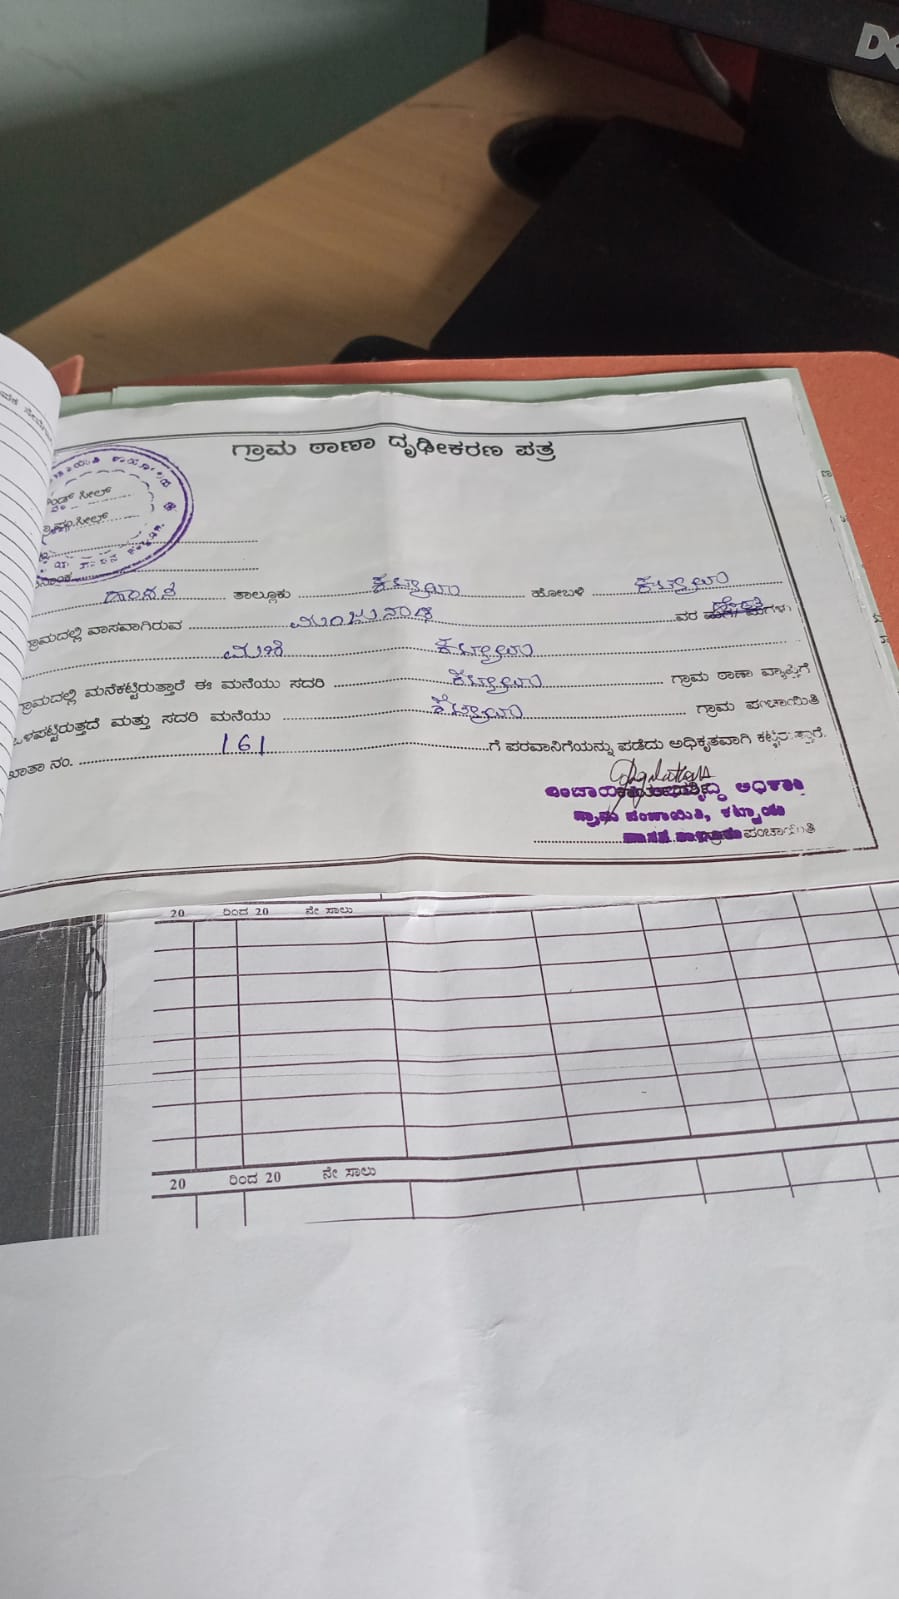 DE
ಗ್ರಾಮ ಠಾಣಾ ದೃಢೀಕರಣ ಪತ್ರ
ಸೀಲ್
ಸೀಲ್
ಹಾಸನ ತಾಲ್ಲೂಕು ಕಟ್ಟಾಯ ಹೋಬಳಿ ಕಟ್ಟಾಯ
ಗ್ರಾಮದಲ್ಲಿ ವಾಸವಾಗಿರುವ ಮಂಜುನಾಥ ರವರ
ಕಟ್ಟಾಯ
ಗ್ರಾಮದಲ್ಲಿ ಮನೆಕಟ್ಟಿರುತ್ತಾರೆ ಈ ಮನೆಯು ಸದರಿ ಕಟ್ಟಾಯ ಗ್ರಾಮ ಠಾಣಾ ವ್ಯಾಪ್ತಿಗೆ
ಒಳಪಟ್ಟಿರುತ್ತದೆ ಮತ್ತು ಸದರಿ ಮನೆಯು ಕಟ್ಟಾಯ ಗ್ರಾಮ ಪಂಚಾಯಿತಿ
ಖಾತಾ ನಂ. 161 ಗೆ ಪರವಾನಿಗೆಯನ್ನು ಪಡೆದು ಅಧಿಕೃತವಾಗಿ ಕಟ್ಟಿರುತ್ತಾರೆ.
ಅಧಿಕಾರಿ
ಗ್ರಾಮ ಪಂಚಾಯಿತಿ, ಕಟ್ಟಾಯ
ಪಂಚಾಯಿತಿ
20 ರಿಂದ 20 ನೇ ಸಾಲು
20 ರಿಂದ 20 ನೇ ಸಾಲು